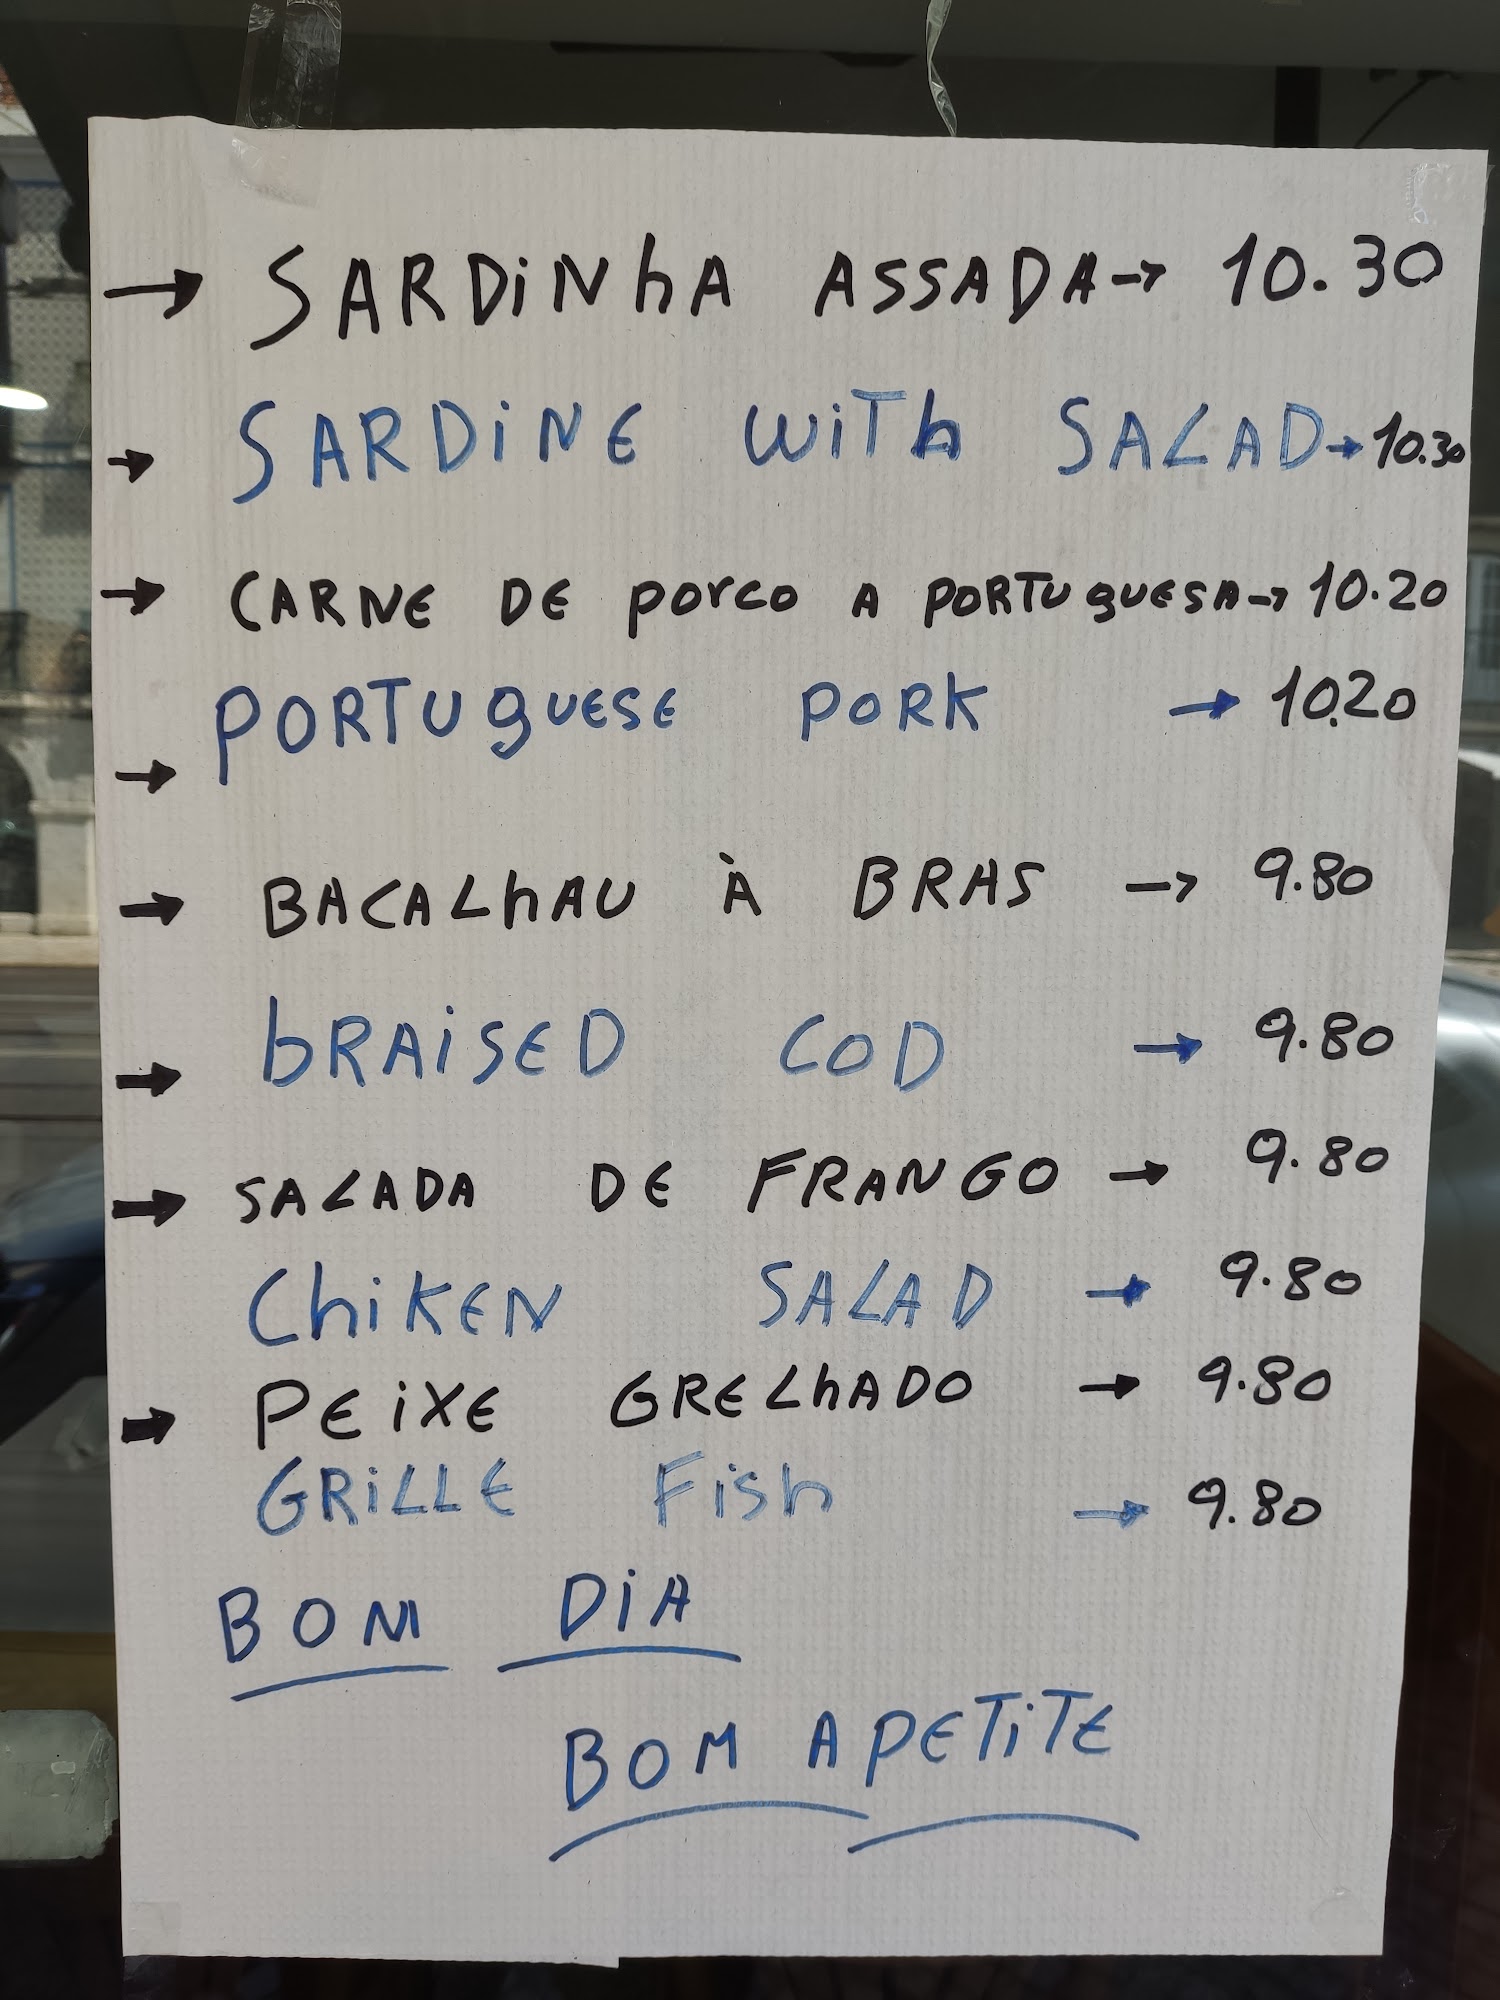 → SARDiNhA ASSADA → 10.30
→ SARDiNE WiTh SALAD → 10.30
→ CARNE DE porco A PORTUgUESA → 10.20
→ PORTUgUESE PORK → 10.20
→ BACALhAU À BRAS → 9.80
→ bRAiSED COD → 9.80
→ SALADA DE FRANGO → 9.80
ChiKEN SALAD → 9.80
→ PEiXE GRELhADO → 9.80
GRiLLE Fish → 9.80
BOM DiA
BOM APETiTE